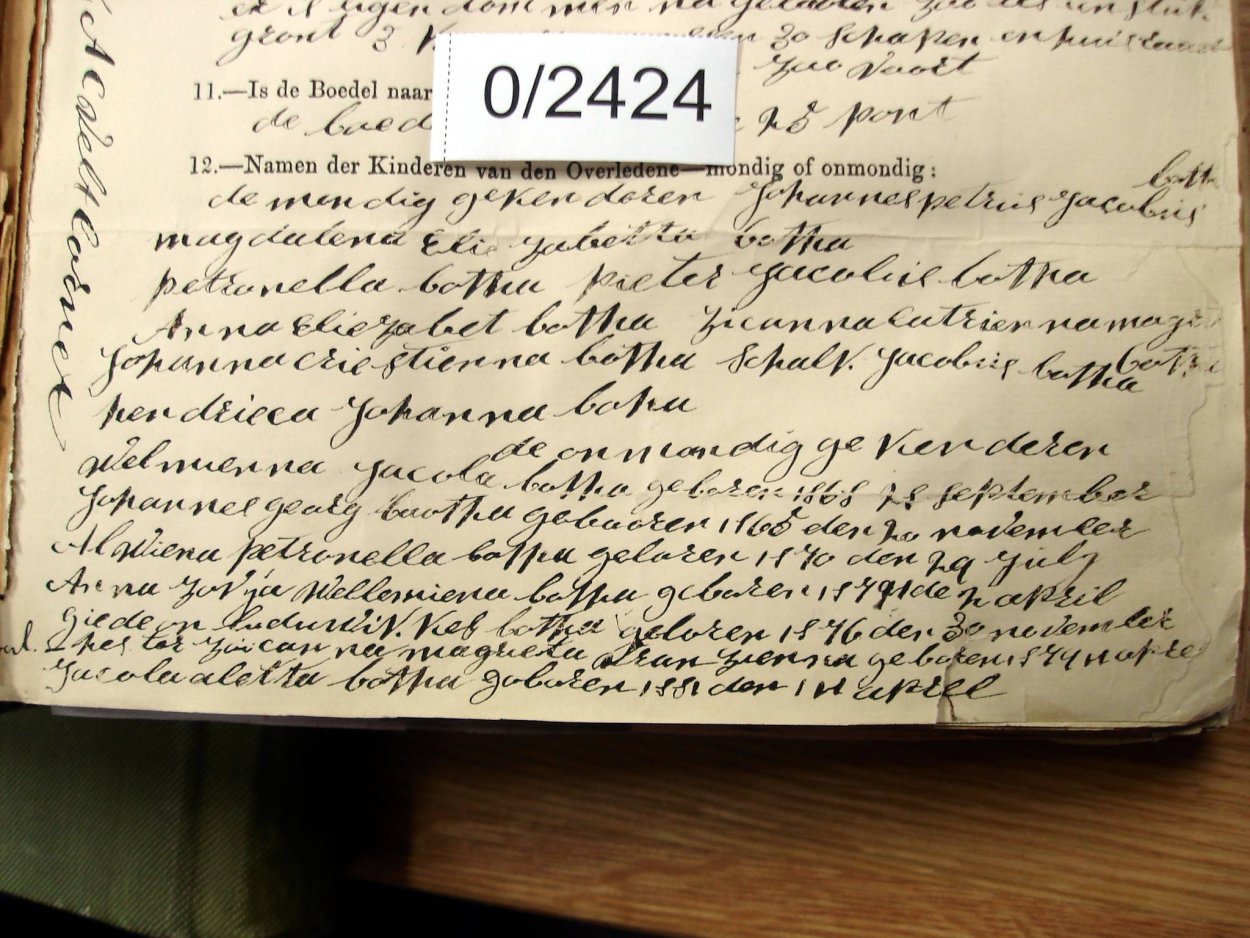 gront 3 30 schapen en huisraad
zoo voort
0/2424
11.—Is de Boedel naar
de boed 75 pont
12.—Namen der Kinderen van den Overledene—mondig of onmondig:
de mondig ge kenderen Johannes petrus Jacobus botha
magdalena Elizabetta botha
petronella botha pieter Jacobus botha
Anna Eliezabet botha zuzanna catrienna magr botha
Johanna criestienna botha Schalk Jacobus botha
hendrieca Johanna botha
de onmondig ge Kenderen
Welmienna Jacoba botha geboren 1868 28 september
Johannes georg bootha gebooren 1865 den 20 november
Alwiena petronella botha geboren 1870 den 29 July
Anna zovja Wellemiena botha geboren 1874 de 2 april
giedeon Luduwik botha geboren 1876 den 30 november
hester zuzanna magrieta geboren 1879 11 apriel
Jacoba aletta botha goboren 1881 den 14 apriel